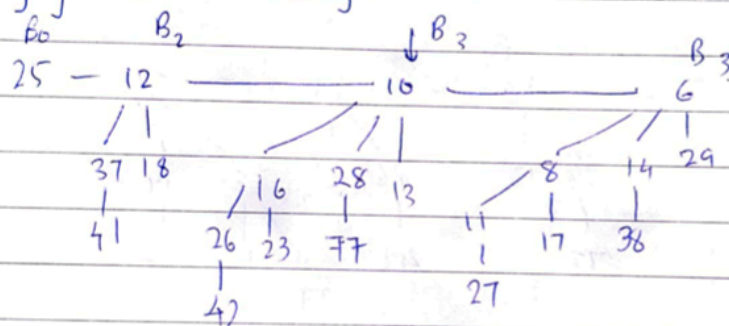 B0 B2 ↓ B3 B3
25 — 12 — 10 — 6
37 18 16 28 13 8 14 29
41 26 23 77 11 17 38
42 27